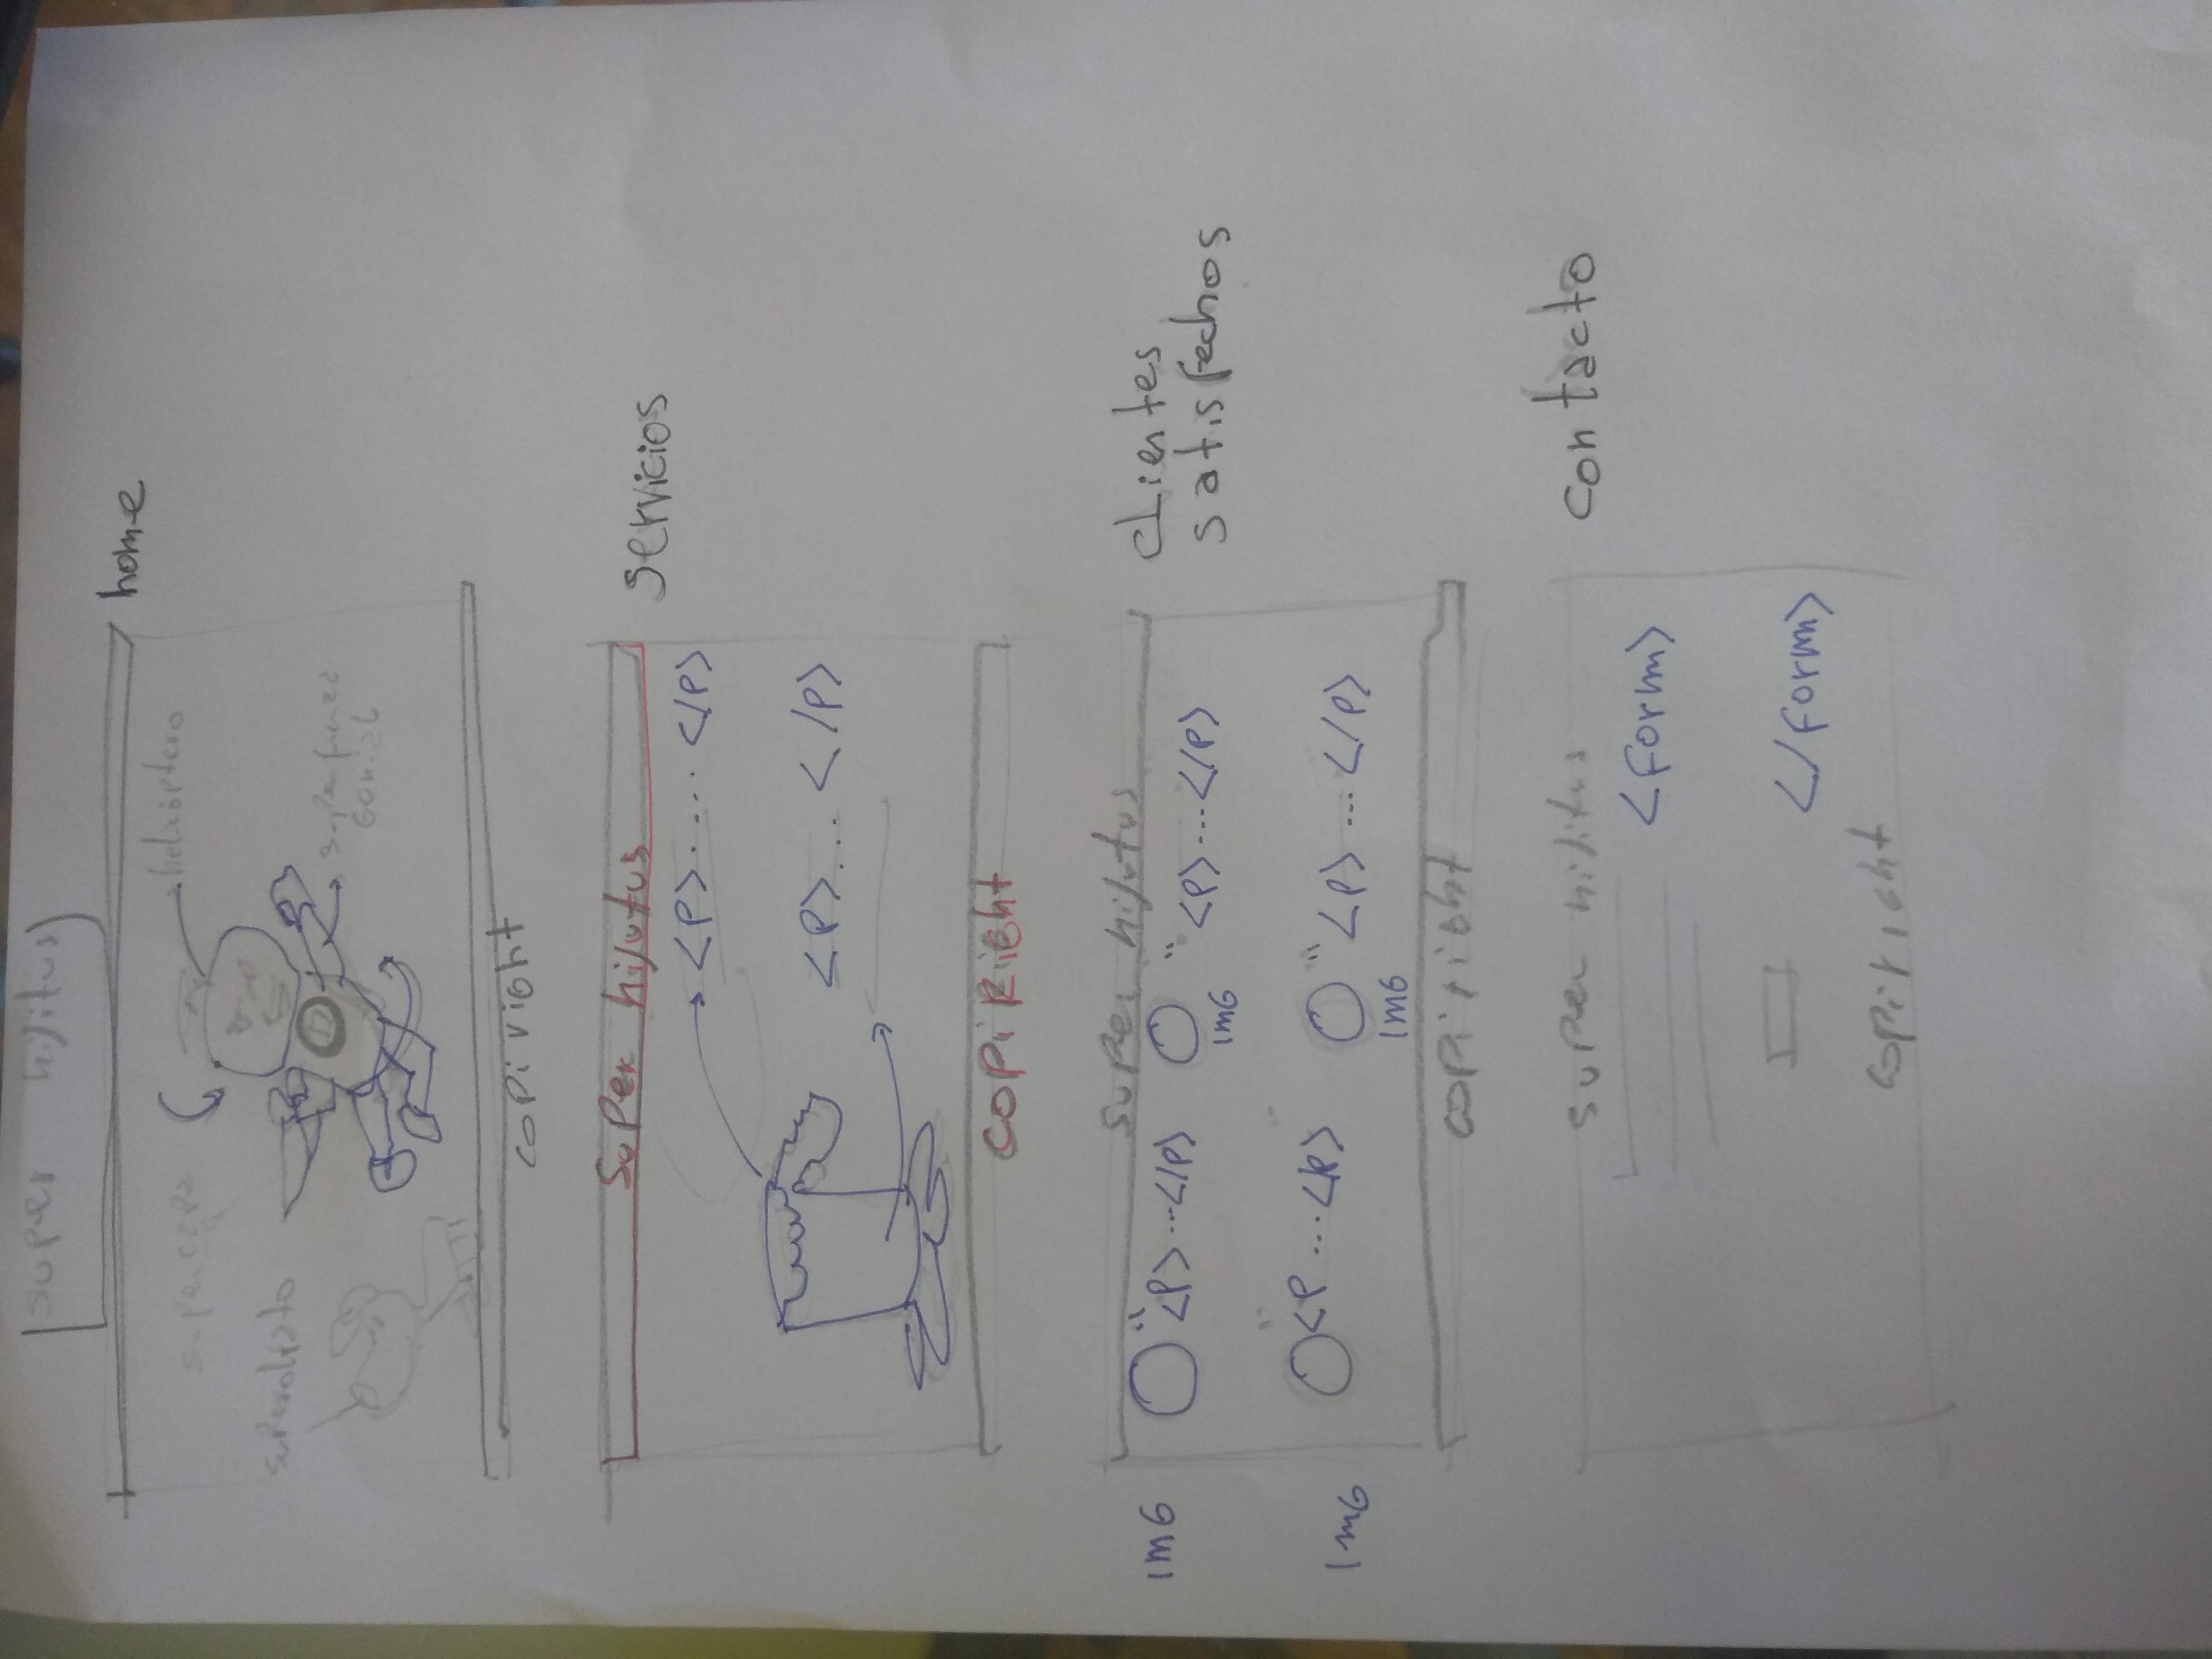 super hijitus
home
supercapa
helicoptero
superolfato
super fuerza
copiright
Super hijutus
servicios
<P>..... </P>
<P>... </P>
copiRight
super hijutus
clientes
satisfechos
IMG
"<P>...</P>
IMG
"<P>...</P>
IMG
"<P ...</P>
IMG
"<P> ... </P>
copiright
super hijitus
contacto
<form>
</form>
copiright